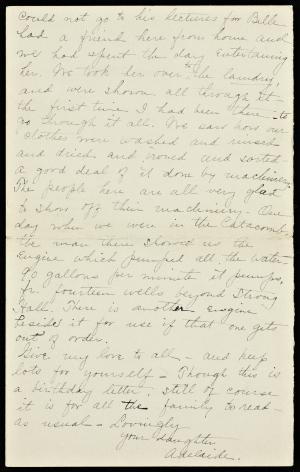 could not go to his lectures for Belle
had a friend here from home and
we had spent the day entertaining
her. We took her over to the laundry,
and were shown all through it -
the first time I had been there to
go through it all. We saw how our
clothes were washed and rinsed
and dried and ironed and sorted -
a good deal of it done by machinery.
The people here are all very glad
to show off their machinery. One
day when we were in the Catacombs
the man there showed us the
Engine which pumped all the water.
90 gallons per minute it pumps,
fr. fourteen wells beyond Strong
Hall. There is another Engine
beside it for use if that one gets
out of order.
Give my love to all - and keep
lots for yourself - Though this is
a birthday letter, still of course
it is for all the family to read
as usual - Lovingly
Your daughter
Adelaide.